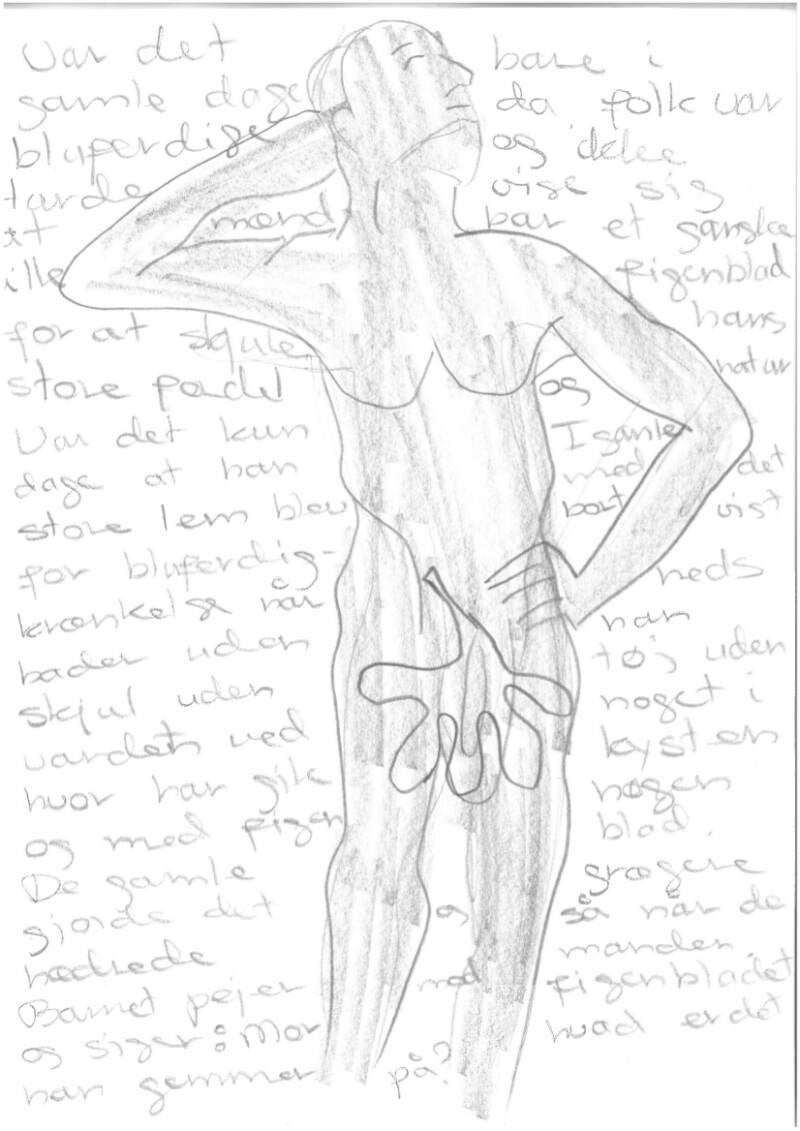 Var det bare i
gamle dage da folk var
bluferdige og ikke
turde vise sig
at mænd bar et ganske
lille figenblad
for at skjule hans
store pendel og natur
Var det kun I gamle
dage at han med det
store lem blev bort vist
for bluferdig- heds
krænkelse når han
bader uden tøj uden
skjul uden noget i
vandet ved kysten
hvor han gik nøgen
og med figen blad.
De gamle grægere
gjorde det og så når de
hædrede manden.
Barnet pejer mod figenbladet
og siger: Mor hvad er det
han gemmer på?